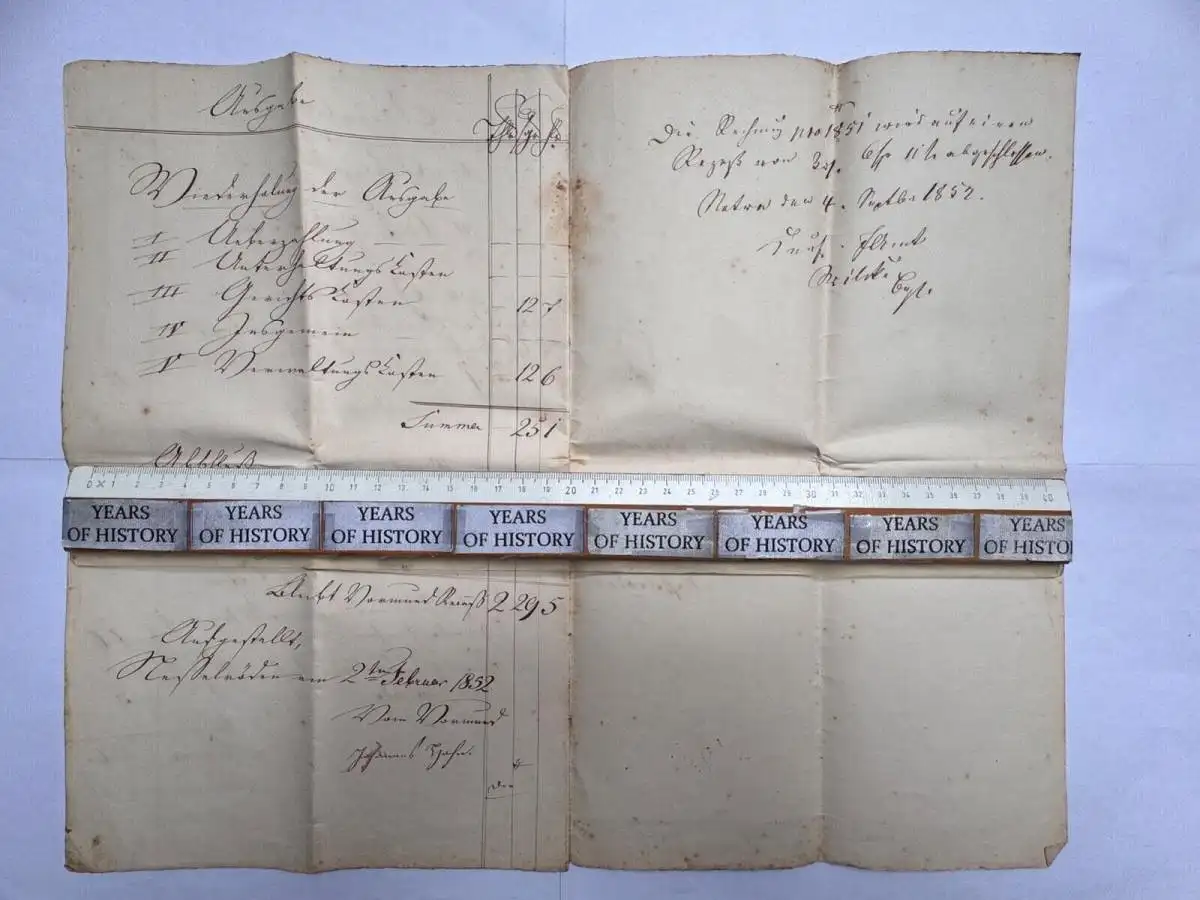 Ausgabe
Wiederholung der Ausgabe
I Ueberzahlung — —
II Unterhaltungskosten — —
III Gerichtskosten — 12 7
IV Insgemein — —
V Verwaltungskosten — 12 6
Summa — 25 1
Abschluß
0 1 2 3 4 5 6 7 8 9 10 11 12 13 14 15 16 17 18 19 20 21 22 23 24 25 26 27 28 29 30 31 32 33 34 35 36 37 38 39 40
YEARS OF HISTORY YEARS OF HISTORY YEARS OF HISTORY YEARS OF HISTORY YEARS OF HISTORY YEARS OF HISTORY YEARS OF HISTORY YEARS OF HISTO
Bleibt Vormund Rezeß 2 29 5
Aufgestellt,
Nesselröden am 2ten Februar 1852
Vom Vormund
Johannes Hahn.
Die Rechnung pro 1851 wird auf einen
Rezeß von abgeschlossen.
Netra den 4. Septbr 1852.